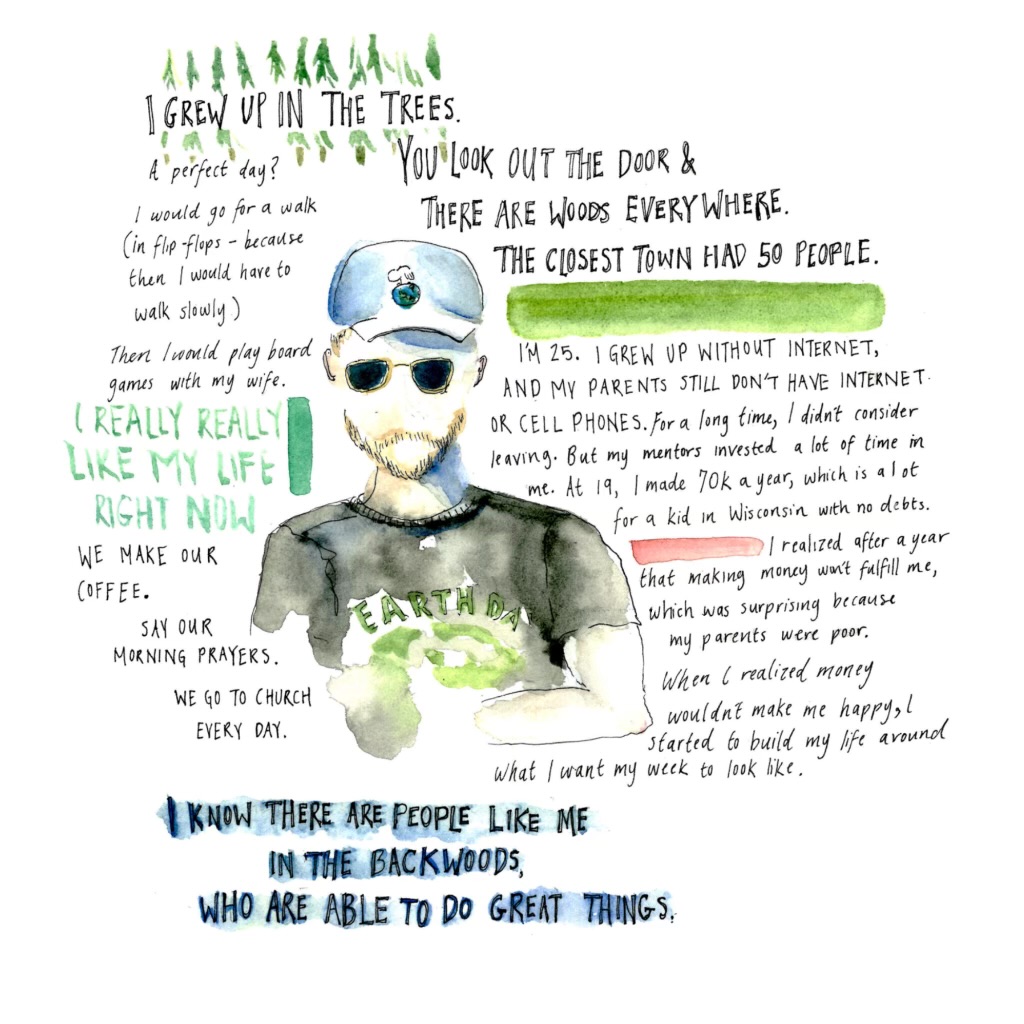 I GREW UP IN THE TREES.
YOU LOOK OUT THE DOOR &
THERE ARE WOODS EVERYWHERE.
THE CLOSEST TOWN HAD 50 PEOPLE.
A perfect day?
I would go for a walk
(in flip-flops - because
then I would have to
walk slowly)
Then I would play board
games with my wife.
I REALLY REALLY
LIKE MY LIFE
RIGHT NOW
WE MAKE OUR
COFFEE.
SAY OUR
MORNING PRAYERS.
WE GO TO CHURCH
EVERY DAY.
EARTH DA
I'M 25. I GREW UP WITHOUT INTERNET,
AND MY PARENTS STILL DON'T HAVE INTERNET
OR CELL PHONES. For a long time, I didn't consider
leaving. But my mentors invested a lot of time in
me. At 19, I made 70k a year, which is a lot
for a kid in Wisconsin with no debts.
I realized after a year
that making money won't fulfill me,
which was surprising because
my parents were poor.
When I realized money
wouldn't make me happy, I
started to build my life around
what I want my week to look like.
I KNOW THERE ARE PEOPLE LIKE ME
IN THE BACKWOODS,
WHO ARE ABLE TO DO GREAT THINGS.